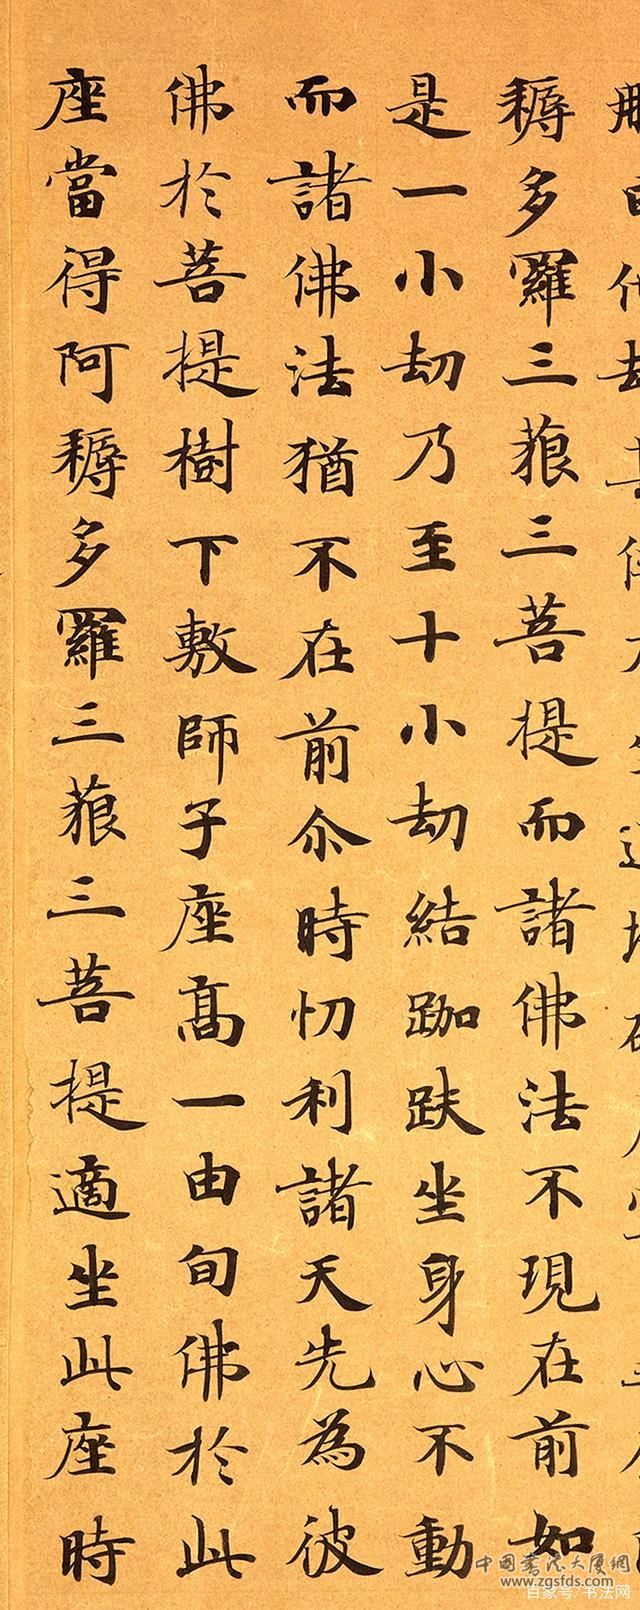 耨多羅三藐三菩提而諸佛法不現在前如
是一小劫乃至十小劫結跏趺坐身心不動
而諸佛法猶不在前尒時忉利諸天先為彼
佛於菩提樹下敷師子座髙一由旬佛於此
座當得阿耨多羅三藐三菩提適坐此座時
中国書法大厦網
www.zgsfds.com
百家号/书法网